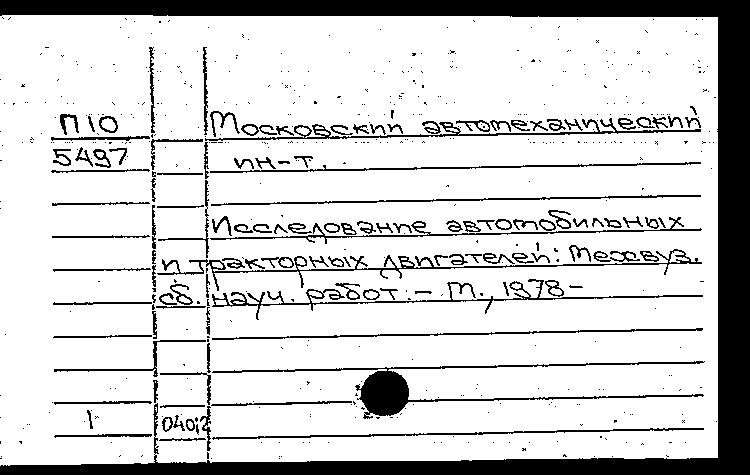 П10 Московский автомеханический
5497 ин-т.
Исследование автомобильных
и тракторных двигателей: Межвуз.
сб. науч. работ. - М., 1978-
1